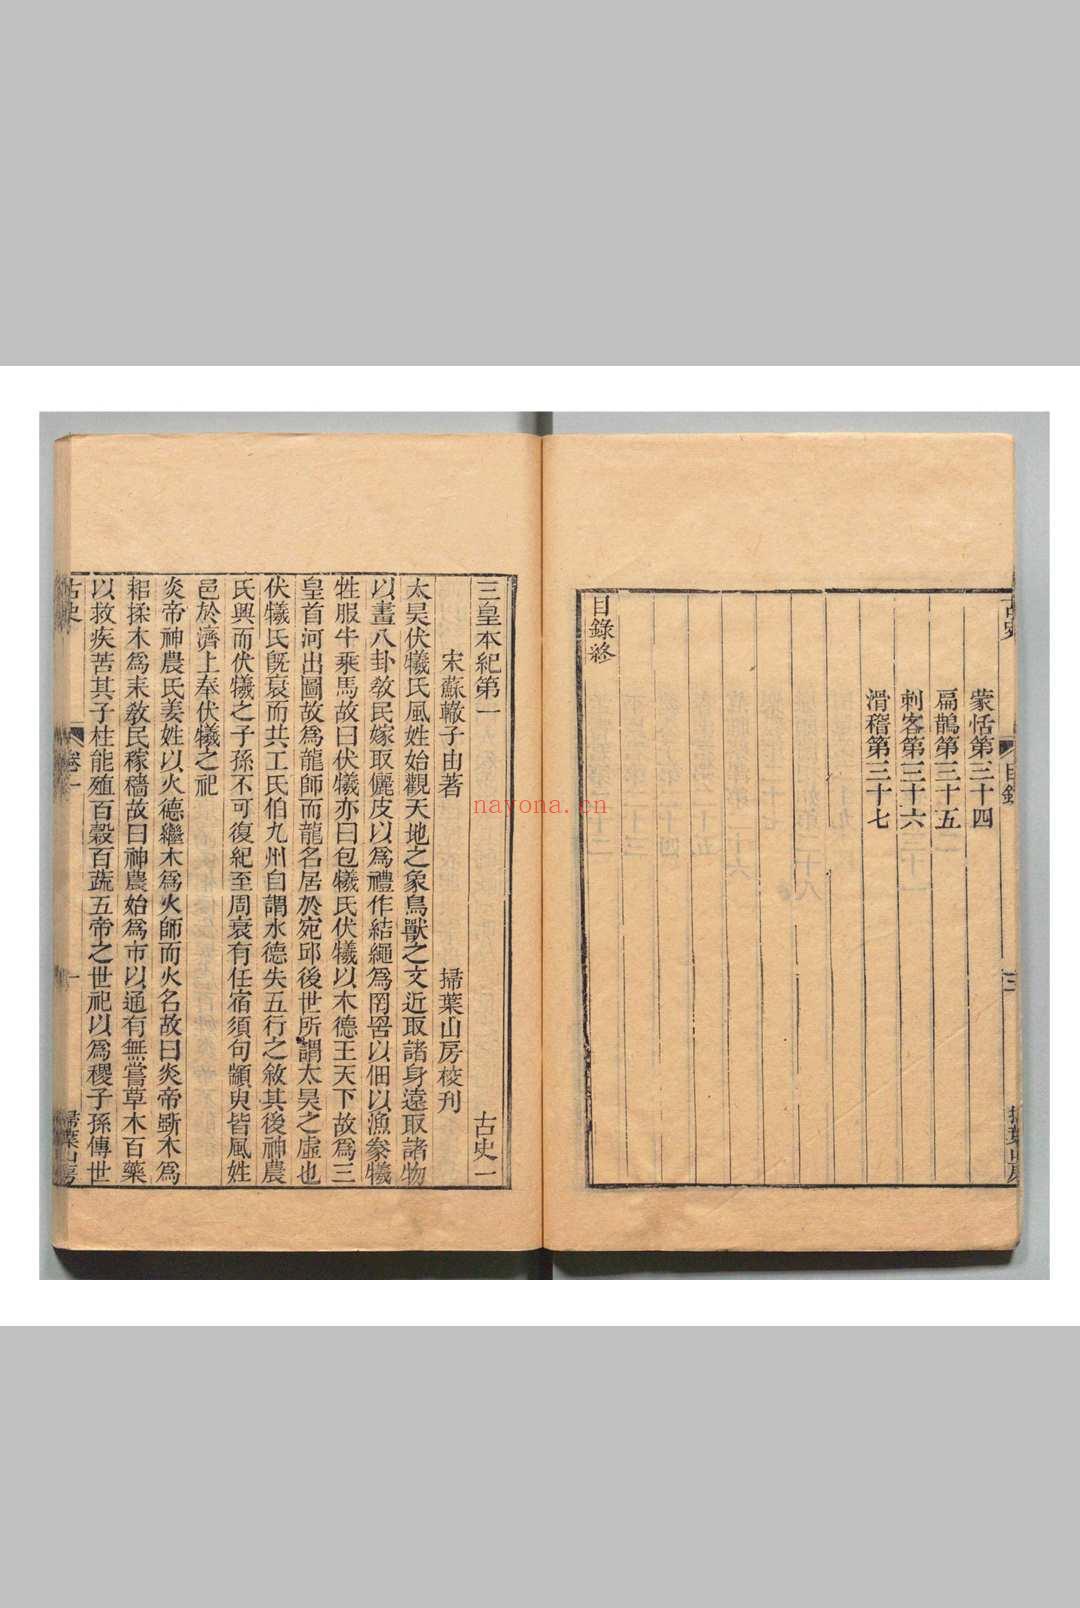 古史
目錄
三
掃葉山房
蒙恬第三十四
扁鵲第三十五
刺客第三十六
滑稽第三十七
目錄終
三皇本紀第一
古史一
宋蘇轍子由著
掃葉山房校刊
太昊伏犧氏風姓始觀天地之象鳥獸之文近取諸身遠取諸物
以畫八卦敎民嫁取儷皮以爲禮作結繩爲罔罟以佃以漁豢犧
牲服牛乘馬故曰伏犧亦曰包犧氏伏犧以木德王天下故爲三
皇首河出圖故爲龍師而龍名居於宛邱後世所謂太昊之虛也
伏犧氏旣衰而共工氏伯九州自謂水德失五行之敘其後神農
氏興而伏犧之子孫不可復紀至周衰有任宿須句顓臾皆風姓
邑於濟上奉伏犧之祀
炎帝神農氏姜姓以火德繼木爲火師而火名故曰炎帝斲木爲
耜揉木爲耒敎民稼穡故曰神農始爲市以通有無嘗草木百藥
以救疾苦其子柱能殖百穀百蔬五帝之世祀以爲稷子孫傳世
古史
卷一
一
掃葉山房
nayona.cn